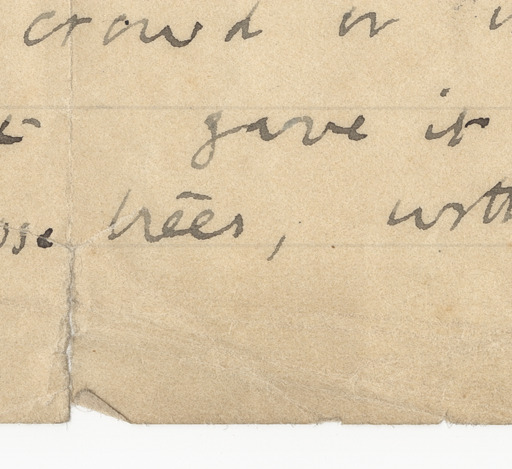 crowd or
gave it
trees, with